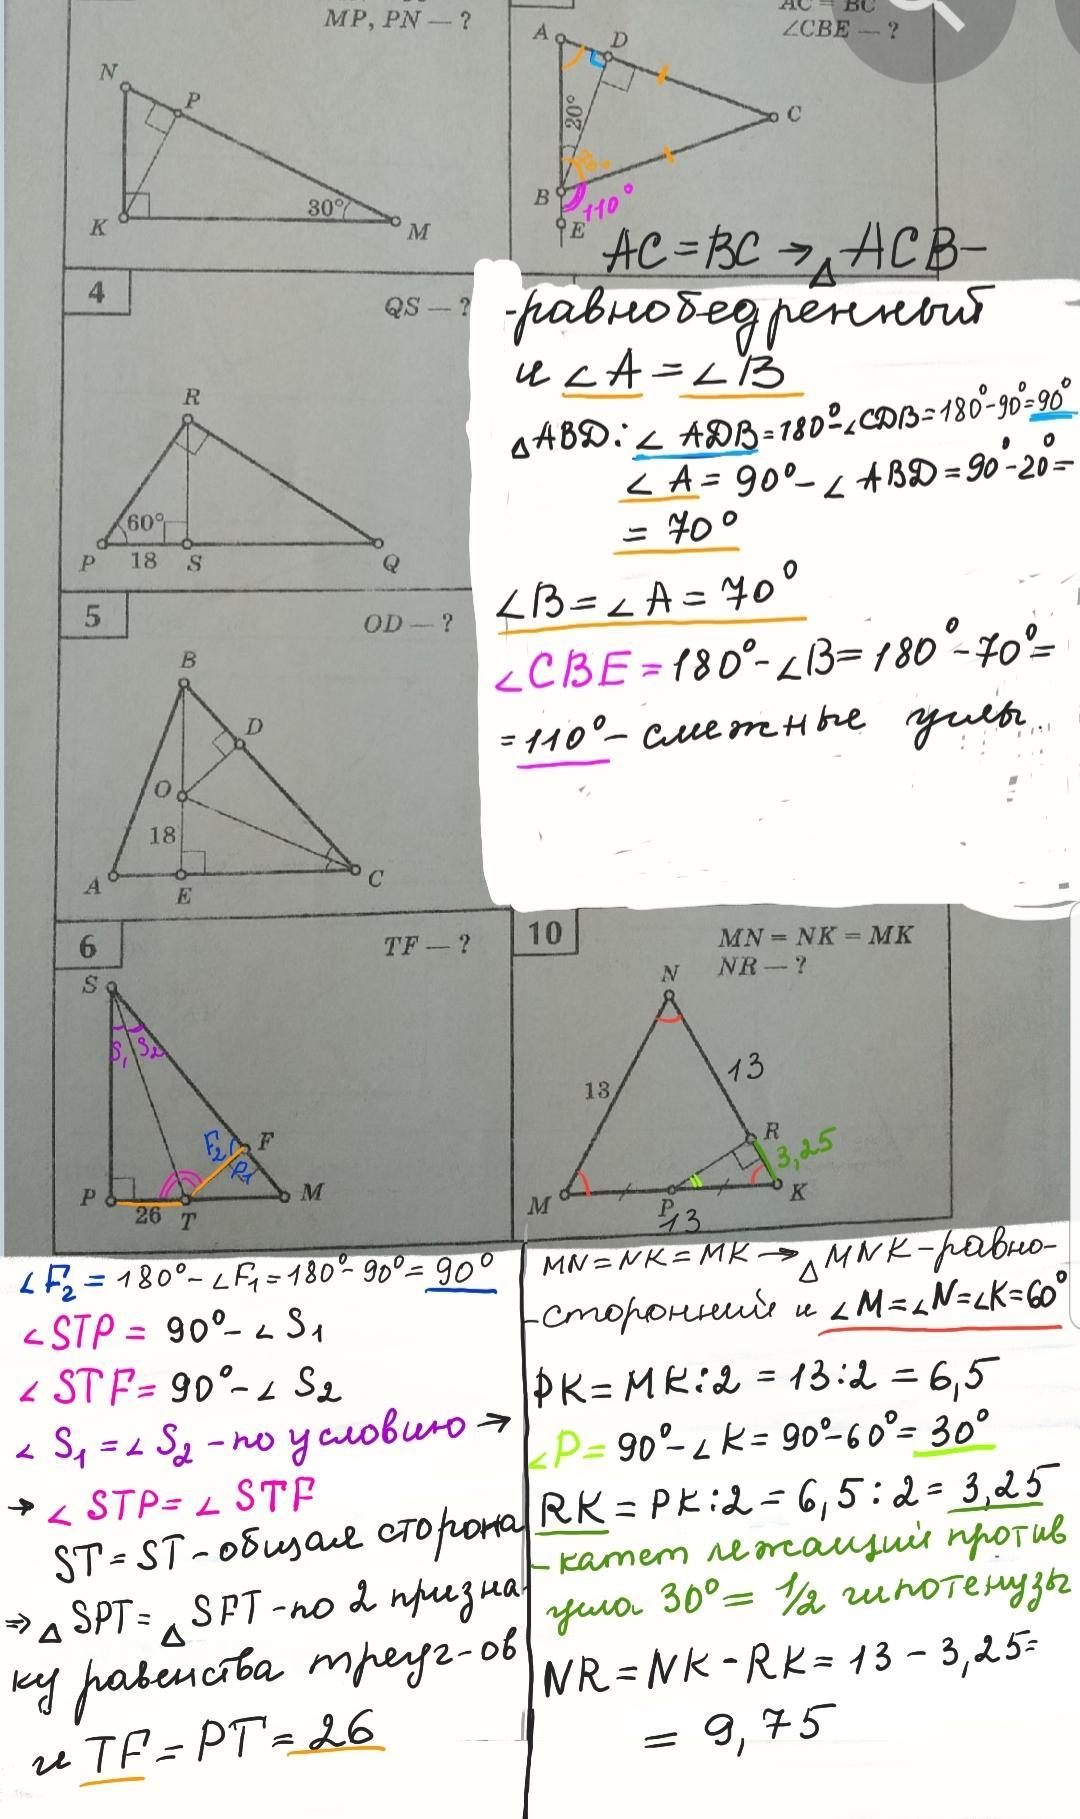 MP, PN — ?
N
P
K
30°
M
AC = BC
∠CBE — ?
A
D
20°
C
B
110°
E
AC=BC → △ACB-
-равнобедренный
и ∠A = ∠B
△ABD: ∠ADB=180°-∠CDB=180°-90°=90°
∠A = 90°-∠ABD=90°-20=
= 70°
∠B=∠A=70°
∠CBE=180°-∠B=180°-70°=
=110°- смежные углы
4
QS — ?
R
60°
P
18
S
Q
5
OD — ?
B
D
O
18
A
E
C
6
TF — ?
S
S₁
S₂
F₂
F
F₁
P
26
T
M
10
MN = NK = MK
NR — ?
N
13
13
R
3,25
M
P
K
13
∠F₂ = 180°-∠F₁=180°-90°=90°
∠STP= 90°-∠S₁
∠STF= 90°-∠S₂
∠S₁=∠S₂-по условию →
→ ∠STP=∠STF
ST=ST-общая сторона
⇒ △SPT=△SFT-по 2 призна-
ку равенства треуг-ов
и TF=PT=26
MN=NK=MK → △MNK-равно-
-сторонний и ∠M=∠N=∠K=60°
PK=MK:2=13:2=6,5
∠P=90°-∠K=90°-60°=30°
RK=PK:2=6,5:2=3,25
-катет лежащий против
угла 30°=1/2 гипотенузы
NR=NK-RK=13-3,25=
= 9,75